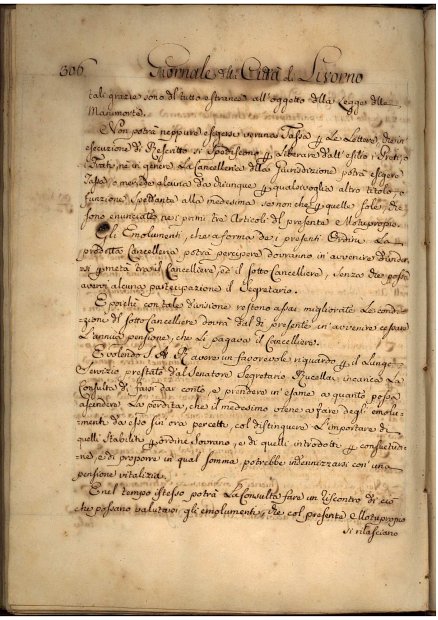 306 Giornale della Città di Livorno
tali grazie sono del tutto estranee all'oggetto della Legge delle
Manimorte.
Non potrà neppure esigersi veruna Tassa p Le Lettere, che in
esecuzione di Rescritto si spediscono p liberare dall'esilio i Preti, o
Frati, ne in genere La Cancelleria della Giurisdizione potrà esigere
Tasse, o mercede alcuna da chiunque p qualsivoglia altro titolo, o
funzione spettante alla medesima se non che p quelle sole, che
sono enunciate nei primi tre Articoli del presente Motuproprio.
Gli Emolumenti, che a forma dei presenti Ordini La
predotta Cancelleria potrà percipere dovranno in avvenire dividersi
p metà tra il Cancelliere, ed il sotto Cancelliere, senza che possa
avervi alcuna partecipazione il Segretario.
E poichè con tale divisione restono assai migliorate Le condizioni
del sotto Cancelliere dovrà dal dì presente in avvenire cessare
L'annua pensione, che Li pagava il Cancelliere.
E volendo S. A. R. avere un favorevole riguardo p il Lungo
Servizio prestato dal Senatore Segretario Rucellai incarica La
Consulta di farsi dar conto, e prendere in esame a quanto possa
ascendere La perdita, che il medesimo viene a fare degl'emolumenti
da esso fin ora percetti, col distinguere L'importare di
quelli stabiliti p ordine Sovrano, e di quelli introdotti p consuetudine,
e di proporre in qual somma potrebbe indennizzarsi con una
pensione vitalizia.
E nel tempo istesso potrà La Consulta fare un riscontro di ciò
che possano valutarsi gli emolumenti, che col presente Motuproprio
si rilasciano